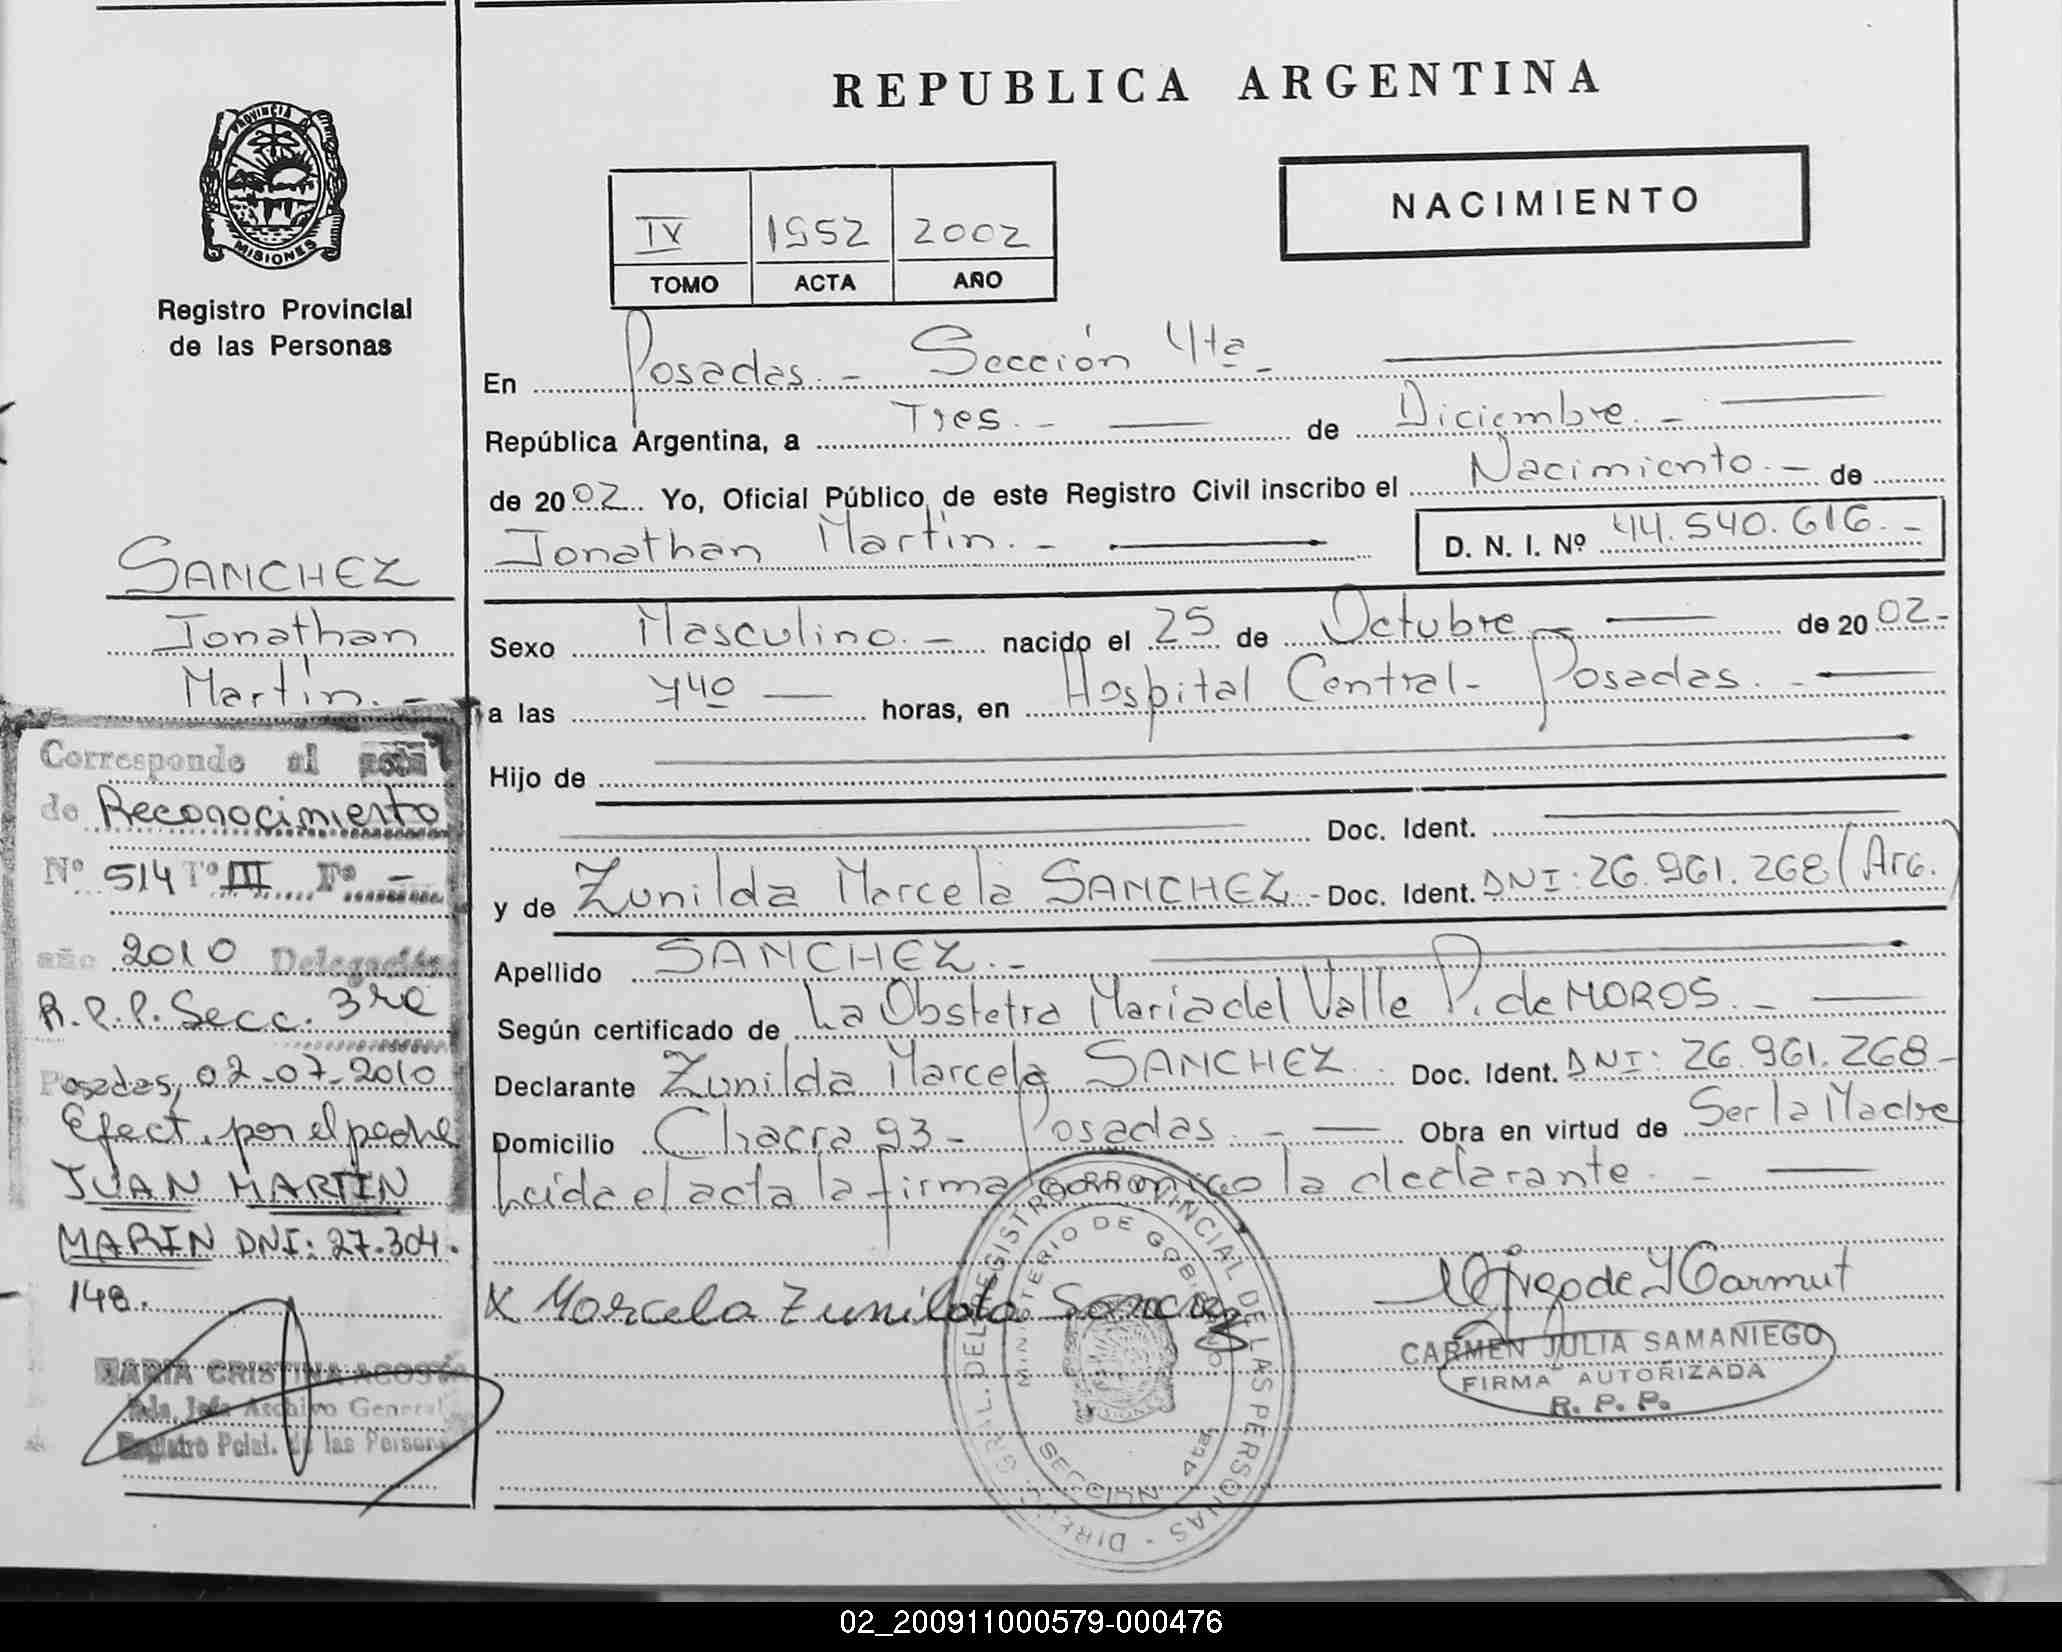 REPUBLICA ARGENTINA
PROVINCIA D
MISIONES
Registro Provincial
de las Personas
NACIMIENTO
IV 1952 2002
TOMO ACTA AÑO
En Posadas.- Sección 4ta.-
República Argentina, a Tres.- de Diciembre.-
de 2002 Yo, Oficial Público de este Registro Civil inscribo el Nacimiento.- de
Jonathan Martín.- D. N. I. Nº 44.540.616.-
SANCHEZ
Jonathan
Martín.-
Sexo Masculino.- nacido el 25 de Octubre - de 2002-
a las 440 horas, en Hospital Central- Posadas.-
Hijo de
Doc. Ident.
y de Zunilda Marcela SANCHEZ.- Doc. Ident. DNI: 26.961.268 (Arg.
Apellido SANCHEZ.-
Según certificado de La Obstetra Maria del Valle P. de MOROS.-
Declarante Zunilda Marcela SANCHEZ. Doc. Ident. DNI: 26.961.268-
Domicilio Chacra 93- Posadas.- Obra en virtud de Ser la Madre
Leída el acta la firma conmigo la declarante.-
Corresponde al acta
de Reconocimiento
Nº 514 Tº III Fº -
año 2010 Delegación
R.P.P. Secc. 3ra
Posadas, 02-07-2010
Efect. por el padre
JUAN MARTIN
MARIN DNI: 27.304.
148.
MARIA CRISTINA ACOSTA
Jefa Archivo General
Registro Pcial. de las Person
X Marcela Zunilda Sanchez
DIRECC. GRAL. DEL REGISTRO PROVINCIAL DE LAS PERSONAS -
MINISTERIO DE GOBIERNO
SECCION 4ta
CARMEN JULIA SAMANIEGO
FIRMA AUTORIZADA
R. P. P.
02_200911000579-000476